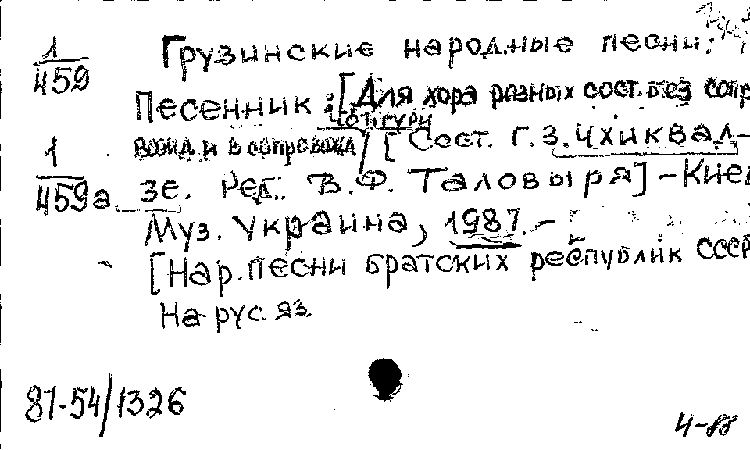 1/459 Грузинские народные песни:
Песенник : [Для хора разных сост. без сопр
чонгури
вожд. и в сопровожд] [Сост. Г.З. Чхиквад-
1/459а зе. Ред. В.Ф. Таловыря] - Киев
Муз. Україна, 1987. -
[Нар. песни братских республик СССР
На рус. яз.
87-54/1326
4-88